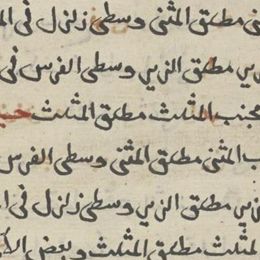 مطلق المثنى وسطى زلزل فى
مطلق الزير وسطى الفرس فى
مجنب المثلث مطلق المثلث
المثنى مطلق المثنى وسطى الفرس
مطلق الزير وسطى زلزل فى
المثلث مطلق المثلث وبعض